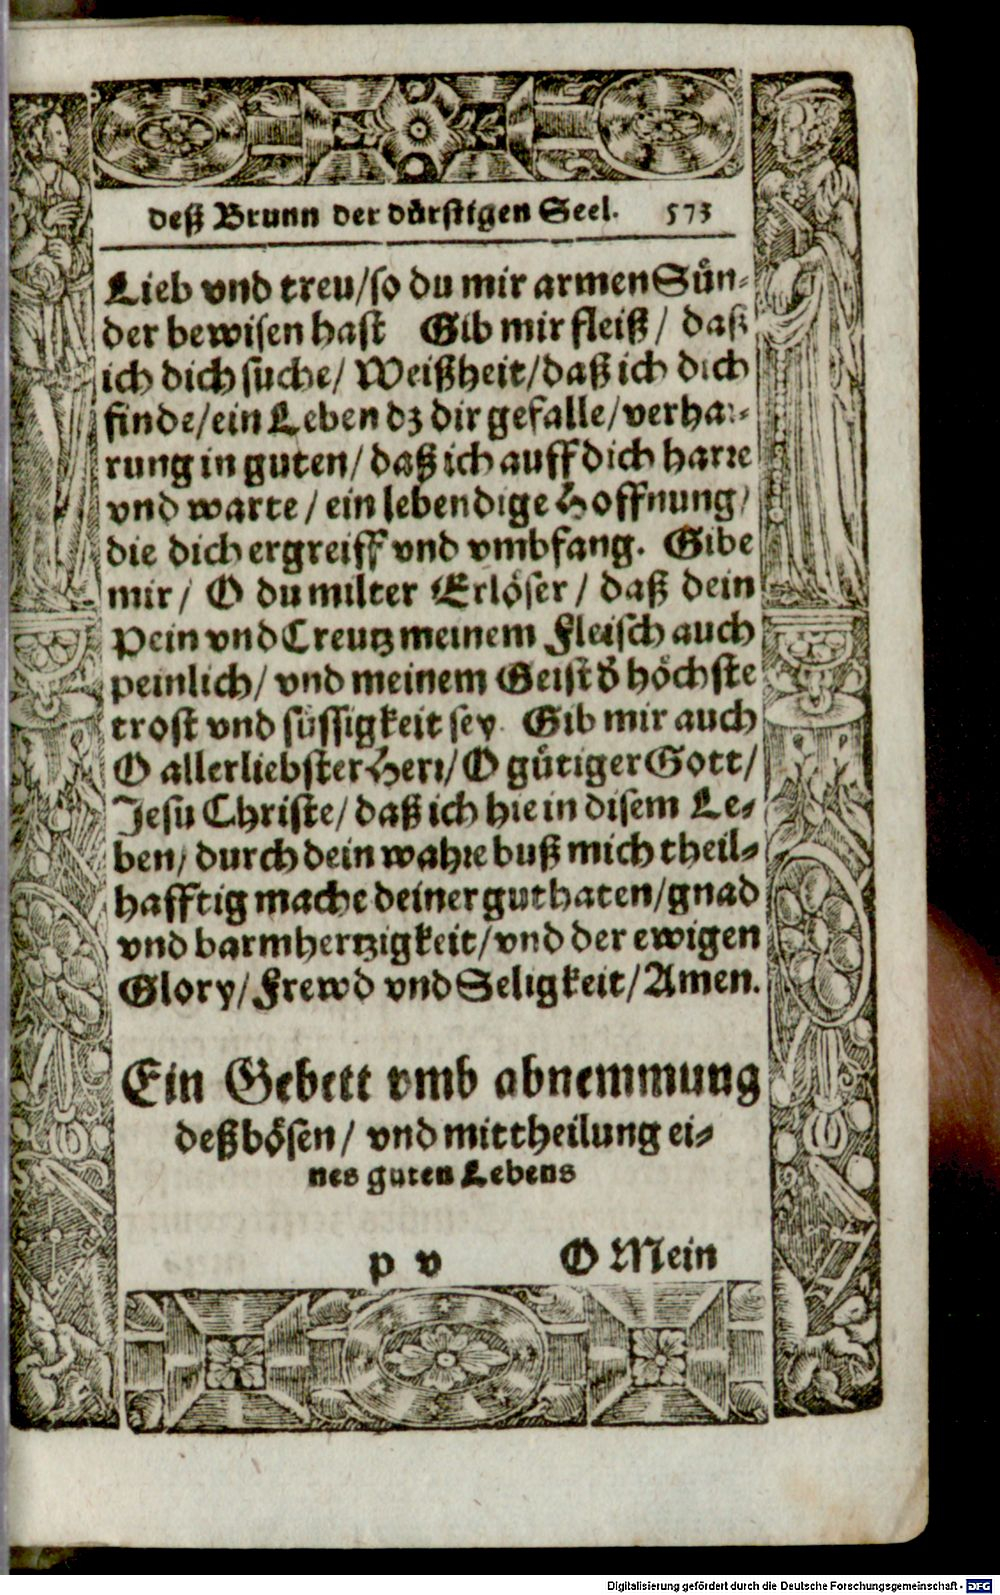 deß Brunn der dürstigen Seel. 573
Lieb vnd treu/so du mir armen Sün-
der bewisen hast Gib mir fleiß/ daß
ich dich suche/ Weißheit/daß ich dich
finde/ein Leben dz dir gefalle/verhar-
rung in guten/daß ich auff dich harre
vnd warte/ ein lebendige Hoffnung/
die dich ergreiff vnd vmbfang. Gibe
mir/ O du milter Erlöser/ daß dein
Pein vnd Creutz meinem Fleisch auch
peinlich/ vnd meinem Geist d̕ höchste
trost vnd süssigkeit sey. Gib mir auch
O allerliebster Herr/O gütiger Gott/
Jesu Christe/daß ich hie in disem Le-
ben/ durch dein wahre buß mich theil-
hafftig mache deiner guthaten/gnad
vnd barmhertzigkeit/vnd der ewigen
Glory/Frewd vnd Seligkeit/Amen.
Ein Gebett vmb abnemmung
deß bösen/ vnd mittheilung ei-
nes guten Lebens
p v O Mein
Digitalisierung gefördert durch die Deutsche Forschungsgemeinschaft - DFG